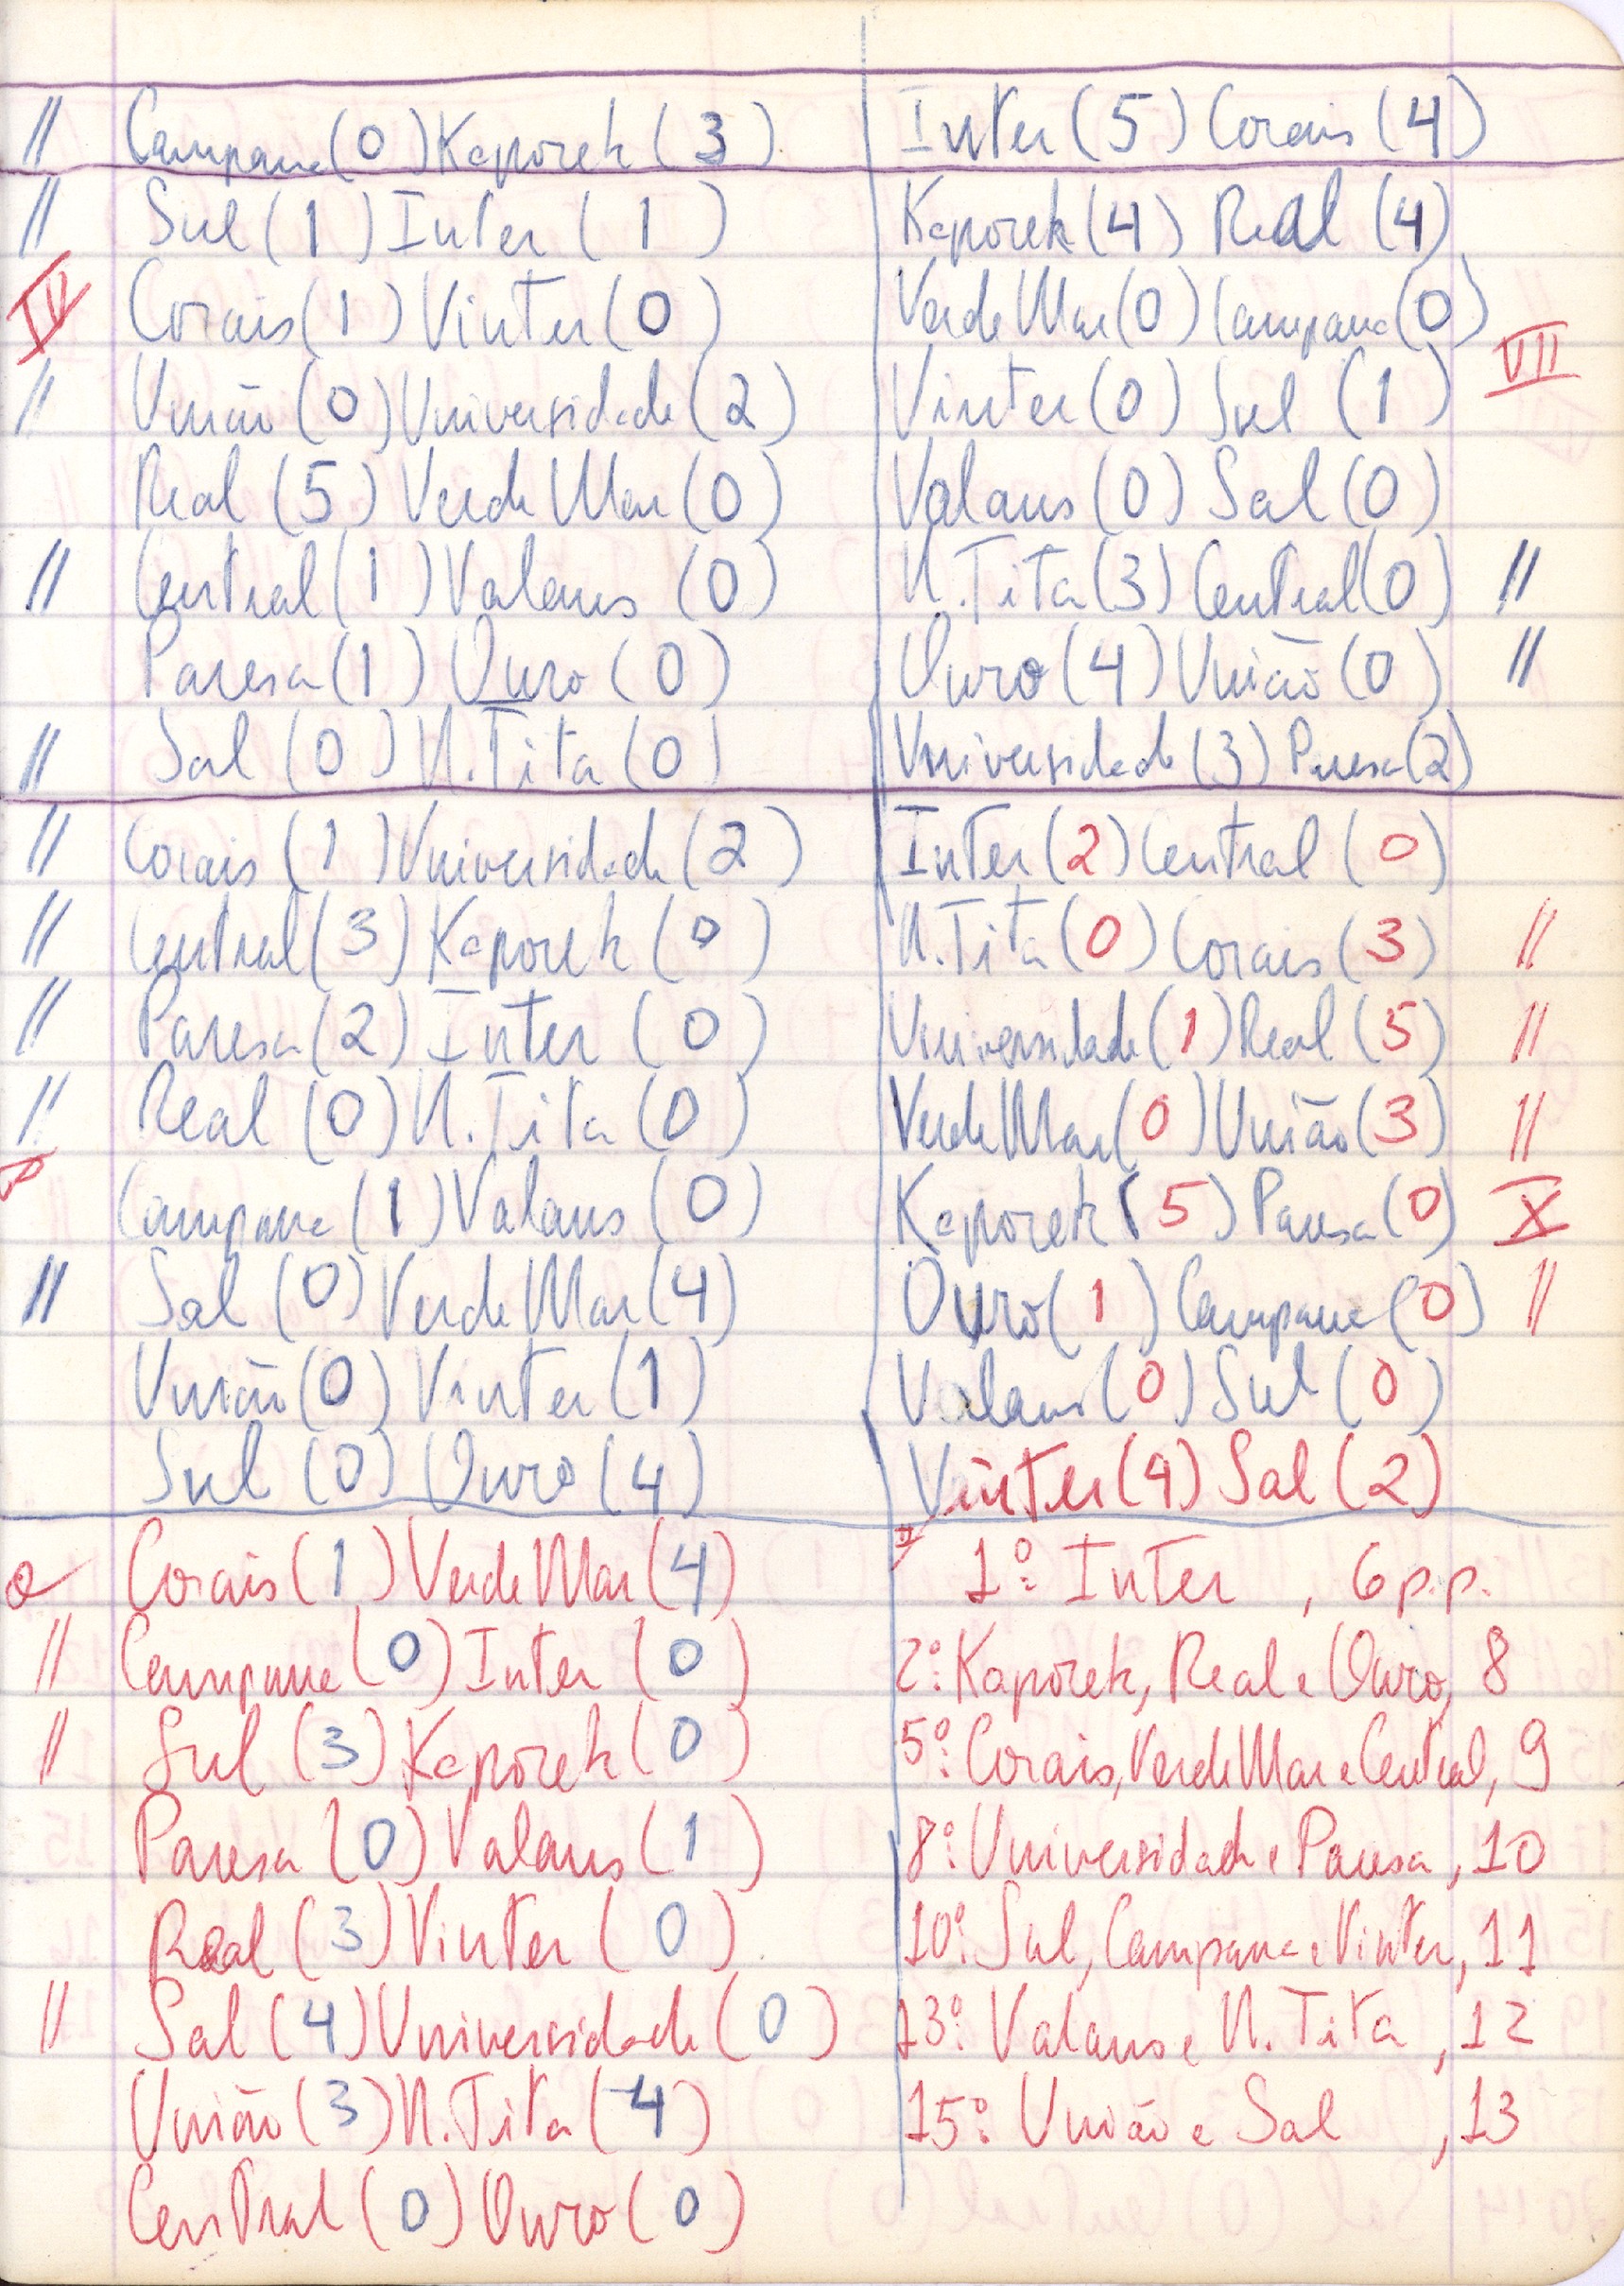 // Campana (0) Kaporek (3)
// Sul (1) Inter (1)
IV Corais (1) Vinter (0)
// União (0) Universidade (2)
Real (5) Verde Mar (0)
// Central (1) Valans (0)
Paresa (1) Ouro (0)
// Sal (0) N. Tita (0)
// Corais (1) Universidade (2)
// Central (3) Kaporek (0)
// Paresa (2) Inter (0)
// Real (0) N. Tita (0)
Campana (1) Valans (0)
// Sal (0) Verde Mar (4)
União (0) Vinter (1)
Sul (0) Ouro (4)
Corais (1) Verde Mar (4)
// Campana (0) Inter (0)
// Sul (3) Kaporek (0)
Paresa (0) Valans (1)
Real (3) Vinter (0)
// Sal (4) Universidade (0)
União (3) N. Tita (4)
Central (0) Ouro (0)
Inter (5) Corais (4)
Kaporek (4) Real (4)
Verde Mar (0) Campana (0)
VII
Vinter (0) Sul (1)
Valans (0) Sal (0)
N. Tita (3) Central (0) //
Ouro (4) União (0) //
Universidade (3) Paresa (2)
Inter (2) Central (0)
N. Tita (0) Corais (3) //
Universidade (1) Real (5) //
Verde Mar (0) União (3) //
Kaporek (5) Paresa (0) X
Ouro (1) Campana (0) //
Valans (0) Sul (0)
Vinter (4) Sal (2)
1º: Inter, 6 p.p.
2º: Kaporek, Real e Ouro, 8
5º: Corais, Verde Mar e Central, 9
8º: Universidade e Paresa, 10
10º: Sul, Campana e Vinter, 11
13º: Valans e N. Tita, 12
15º: União e Sal, 13